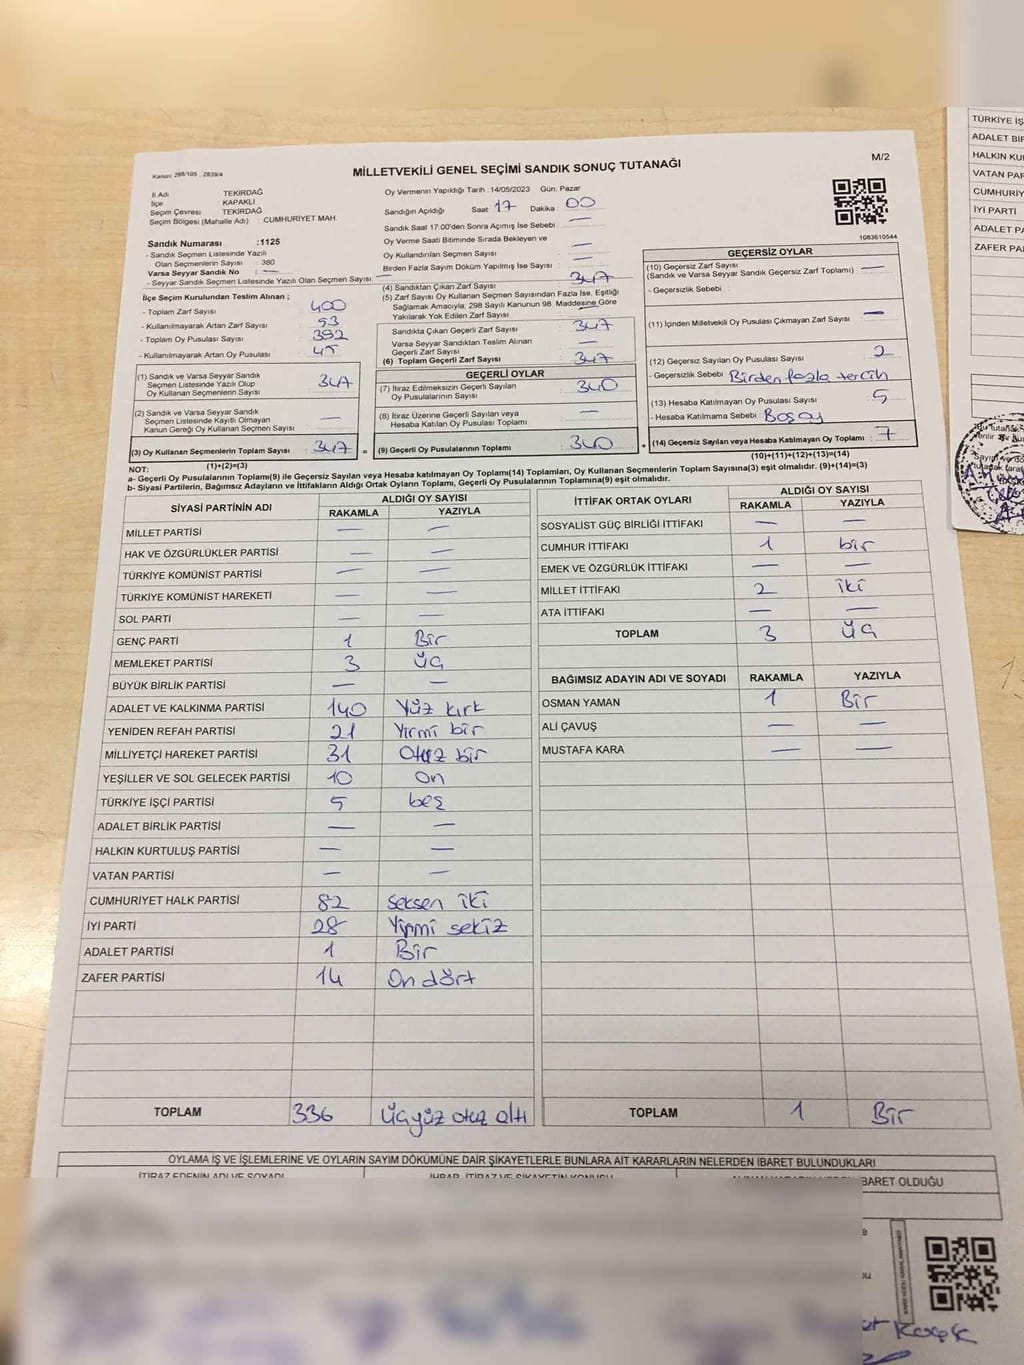 TÜRKİYE İŞ
ADALET BİR
HALKIN KU
VATAN PAR
CUMHURİY
İYİ PARTİ
ADALET PA
ZAFER PAR
Kanun: 298/105 , 2839/4
MİLLETVEKİLİ GENEL SEÇİMİ SANDIK SONUÇ TUTANAĞI
M/2
İl Adı TEKİRDAĞ
İlçe KAPAKLI
Seçim Çevresi TEKİRDAĞ
Seçim Bölgesi (Mahalle Adı) CUMHURİYET MAH.
Sandık Numarası :1125
- Sandık Seçmen Listesinde Yazılı
Olan Seçmenlerin Sayısı : 380
Varsa Seyyar Sandık No : —
- Seyyar Sandık Seçmen Listesinde Yazılı Olan Seçmen Sayısı: —
Oy Vermenin Yapıldığı Tarih :14/05/2023 Gün: Pazar
Sandığın Açıldığı Saat 17 Dakika 00
Sandık Saat 17:00'den Sonra Açılmış İse Sebebi —
Oy Verme Saati Bitiminde Sırada Bekleyen ve
Oy Kullandırılan Seçmen Sayısı —
Birden Fazla Sayım Döküm Yapılmış İse Sayısı —
1083610544
İlçe Seçim Kurulundan Teslim Alınan ;
- Toplam Zarf Sayısı : 400
- Kullanılmayarak Artan Zarf Sayısı : 53
- Toplam Oy Pusulası Sayısı : 392
- Kullanılmayarak Artan Oy Pusulası : 45
(1) Sandık ve Varsa Seyyar Sandık
Seçmen Listesinde Yazılı Olup
Oy Kullanan Seçmenlerin Sayısı : 347
(2) Sandık ve Varsa Seyyar Sandık
Seçmen Listesinde Kayıtlı Olmayan
Kanun Gereği Oy Kullanan Seçmen Sayısı : —
(3) Oy Kullanan Seçmenlerin Toplam Sayısı : 347 =
(1)+(2)=(3)
(4) Sandıktan Çıkan Zarf Sayısı : 347
(5) Zarf Sayısı Oy Kullanan Seçmen Sayısından Fazla İse, Eşitliği
Sağlamak Amacıyla, 298 Sayılı Kanunun 98. Maddesine Göre
Yakılarak Yok Edilen Zarf Sayısı : —
Sandıkta Çıkan Geçerli Zarf Sayısı : 347
Varsa Seyyar Sandıktan Teslim Alınan
Geçerli Zarf Sayısı : —
(6) Toplam Geçerli Zarf Sayısı : 347
GEÇERLİ OYLAR
(7) İtiraz Edilmeksizin Geçerli Sayılan
Oy Pusulalarının Sayısı : 340
(8) İtiraz Üzerine Geçerli Sayılan veya
Hesaba Katılan Oy Pusulası Toplamı : —
(9) Geçerli Oy Pusulalarının Toplamı : 340 +
GEÇERSİZ OYLAR
(10) Geçersiz Zarf Sayısı
(Sandık ve Varsa Seyyar Sandık Geçersiz Zarf Toplamı) : —
- Geçersizlik Sebebi :
(11) İçinden Milletvekili Oy Pusulası Çıkmayan Zarf Sayısı : —
(12) Geçersiz Sayılan Oy Pusulası Sayısı : 2
- Geçersizlik Sebebi : Birden fazla tercih
(13) Hesaba Katılmayan Oy Pusulası Sayısı : 5
- Hesaba Katılmama Sebebi :
(14) Geçersiz Sayılan veya Hesaba Katılmayan Oy Toplamı : 7
(10)+(11)+(12)+(13)=(14)
NOT:
a- Geçerli Oy Pusulalarının Toplamı(9) ile Geçersiz Sayılan veya Hesaba katılmayan Oy Toplamı(14) Toplamları, Oy Kullanan Seçmenlerin Toplam Sayısına(3) eşit olmalıdır. (9)+(14)=(3)
b- Siyasi Partilerin, Bağımsız Adayların ve İttifakların Aldığı Ortak Oyların Toplamı, Geçerli Oy Pusulalarının Toplamına(9) eşit olmalıdır.
SİYASİ PARTİNİN ADI
ALDIĞI OY SAYISI
RAKAMLA YAZIYLA
MİLLET PARTİSİ — —
HAK VE ÖZGÜRLÜKLER PARTİSİ — —
TÜRKİYE KOMÜNİST PARTİSİ — —
TÜRKİYE KOMÜNİST HAREKETİ — —
SOL PARTİ — —
GENÇ PARTİ 1 Bir
MEMLEKET PARTİSİ 3 üç
BÜYÜK BİRLİK PARTİSİ — —
ADALET VE KALKINMA PARTİSİ 140 Yüz kırk
YENİDEN REFAH PARTİSİ 21 Yirmi bir
MİLLİYETÇİ HAREKET PARTİSİ 31 Otuz bir
YEŞİLLER VE SOL GELECEK PARTİSİ 10 On
TÜRKİYE İŞÇİ PARTİSİ 5 beş
ADALET BİRLİK PARTİSİ — —
HALKIN KURTULUŞ PARTİSİ — —
VATAN PARTİSİ — —
CUMHURİYET HALK PARTİSİ 82 Seksen iki
İYİ PARTİ 28 Yirmi sekiz
ADALET PARTİSİ 1 Bir
ZAFER PARTİSİ 14 On dört
TOPLAM 336 Üçyüz otuz altı
İTTİFAK ORTAK OYLARI
ALDIĞI OY SAYISI
RAKAMLA YAZIYLA
SOSYALİST GÜÇ BİRLİĞİ İTTİFAKI — —
CUMHUR İTTİFAKI 1 bir
EMEK VE ÖZGÜRLÜK İTTİFAKI — —
MİLLET İTTİFAKI 2 iki
ATA İTTİFAKI — —
TOPLAM 3 üç
BAĞIMSIZ ADAYIN ADI VE SOYADI RAKAMLA YAZIYLA
OSMAN YAMAN 1 Bir
ALİ ÇAVUŞ — —
MUSTAFA KARA — —
TOPLAM 1 Bir
OYLAMA İŞ VE İŞLEMLERİNE VE OYLARIN SAYIM DÖKÜMÜNE DAİR ŞİKAYETLERLE BUNLARA AİT KARARLARIN NELERDEN İBARET BULUNDUKLARI
İTİRAZ EDENİN ADI VE SOYADI
İHBAR, İTİRAZ VE ŞİKAYETİN KONUSU
BARET OLDUĞU